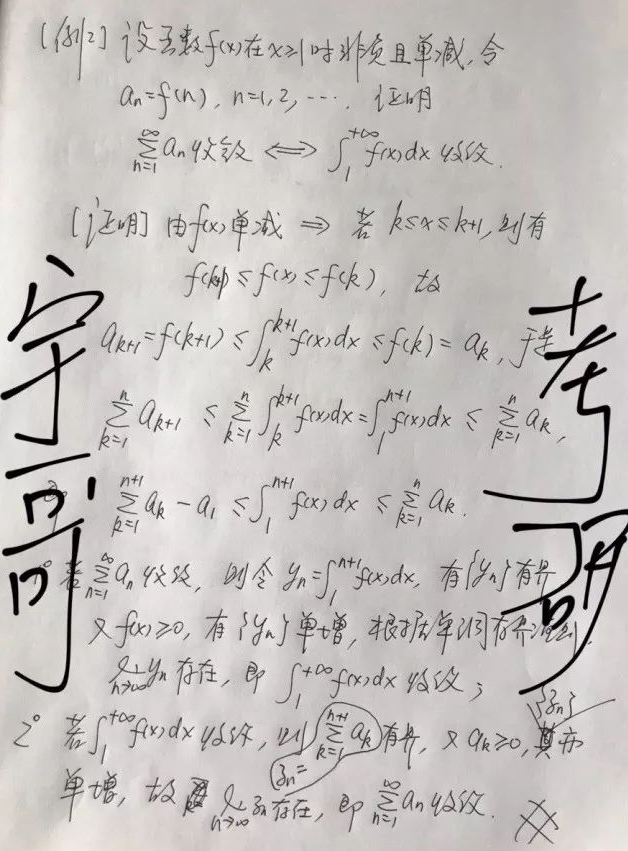 [例2] 设函数f(x)在x≥1时非负且单减,令
aₙ=f(n), n=1,2,⋯. 证明
∑_{n=1}^{∞} aₙ 收敛 ⟺ ∫_1^{+∞} f(x)dx 收敛.
[证明] 由f(x)单减 ⇒ 若 k≤x≤k+1, 则有
f(k+1) ≤ f(x) ≤ f(k), 故
a_{k+1} = f(k+1) ≤ ∫_k^{k+1} f(x)dx ≤ f(k) = a_k, 于是
∑_{k=1}^{n} a_{k+1} ≤ ∑_{k=1}^{n} ∫_k^{k+1} f(x)dx = ∫_1^{n+1} f(x)dx ≤ ∑_{k=1}^{n} a_k,
∑_{k=1}^{n+1} a_k − a₁ ≤ ∫_1^{n+1} f(x)dx ≤ ∑_{k=1}^{n} a_k.
若 ∑_{n=1}^{∞} aₙ 收敛, 则令 yₙ = ∫_1^{n+1} f(x)dx, 有{yₙ}有界
又 f(x)≥0, 有{yₙ}单增, 根据单调有界
lim_{n→∞} yₙ 存在, 即 ∫_1^{+∞} f(x)dx 收敛;
2° 若 ∫_1^{+∞} f(x)dx 收敛, 则 ∑_{k=1}^{n+1} a_k 有界, 又 a_k≥0, {zₙ} 亦
zₙ=
单增, 故 lim_{n→∞} zₙ 存在, 即 ∑_{n=1}^{∞} aₙ 收敛.
宇哥
考研